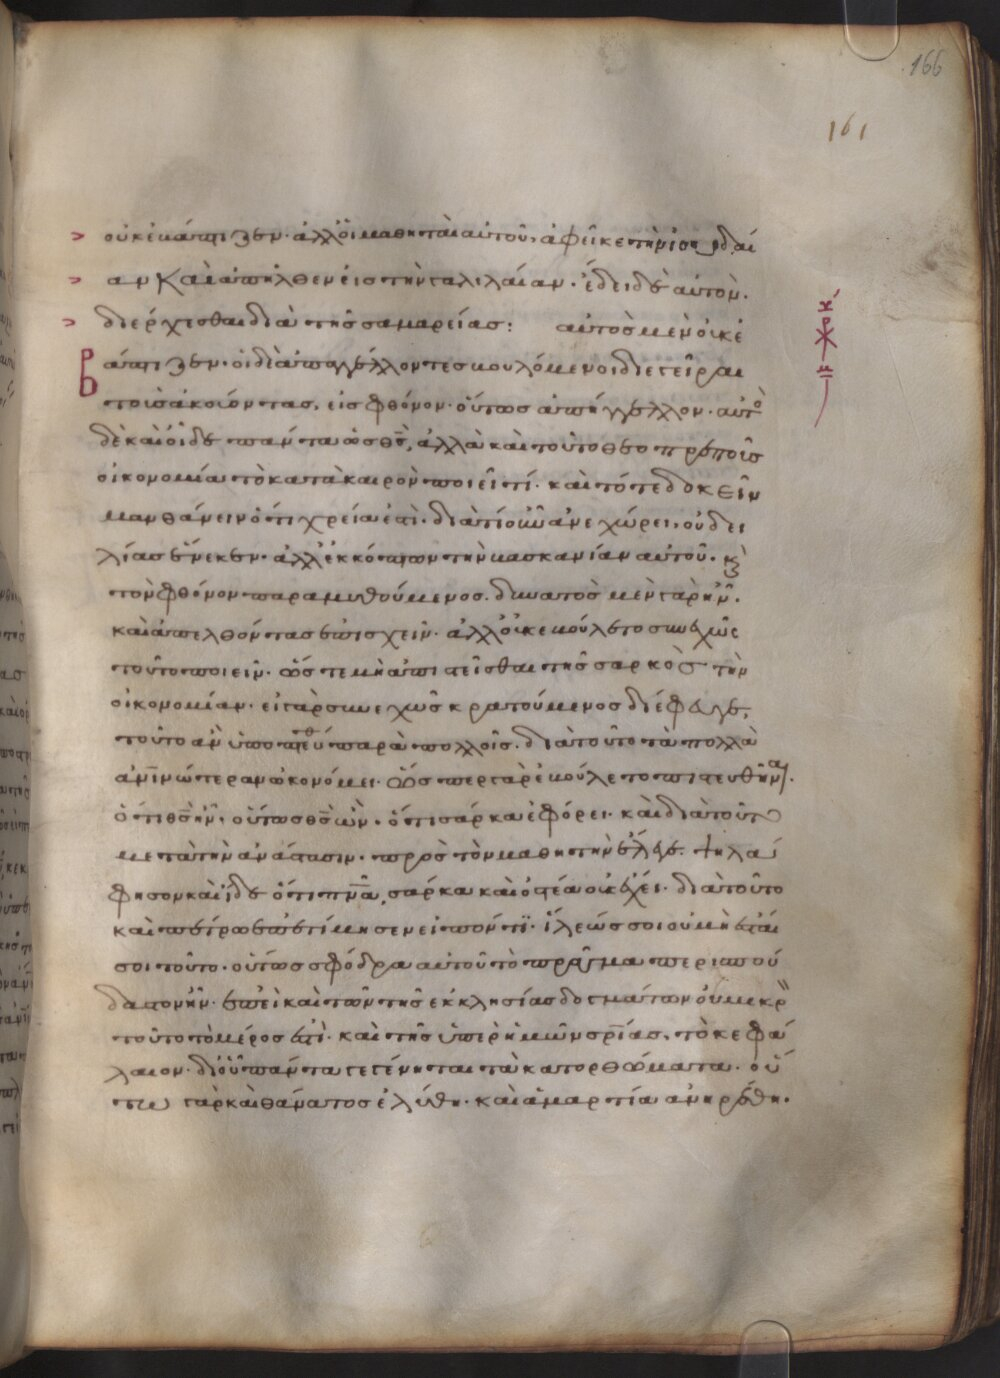 166
161
οὐκ ἐβάπτιζεν· ἀλλ' οἱ μαθηταὶ αὐτοῦ, ἀφεῖκε τὴν ἰουδαί
αν καὶ ἀπῆλθεν εἰς τὴν γαλιλαίαν· ἔδει δὲ αὐτὸν.
διέρχεσθαι διὰ τῆς σαμαρείας: αὐτὸς μὲν οὐκ ἐ
βάπτιζεν· οἱ δὲ ἀπαγγέλλοντες βουλόμενοι διεγεῖραι
τοὺς ἀκούοντας, εἰς φθόνον· οὕτως ἀπήγγελλον· αὐτὸ
δὲ καὶ οἶδε πάντα ὡς θς̅, ἀλλὰ καὶ τοῦτο θεοπρεποῦς
οἰκονομία τὸ κατὰ καιρὸν ποιεῖν τί· καὶ τό τε δοκεῖν
μανθάνειν ὅτι χρεία ἐστὶ· διατί οὖν ἀνεχώρει, οὐ δει
λίας ἕνεκεν· ἀλλ' ἐκκόπτων τὴν βασκανίαν αὐτοῦ. κ̀
τὸν φθόνον παραμυθούμενος. δυνατὸς μὲν γὰρ ἦν.
καὶ ἀπελθόντας ἐπισχεῖν· ἀλλ' οὐκ ἐβούλετο συνεχῶς
τοῦτο ποιεῖν· ὥστε μὴ ἀπιστεῖσθαι τῆς σαρκὸς τὴν
οἰκονομίαν· εἰ γὰρ συνεχῶς κρατούμενος διέφυγε,
τοῦτο ἂν ὑποπτεύθ παρὰ πολλοῖς. διὰ τοῦτο τὰ πολλὰ
ἀν̅ινώτερον ᾠκονόμει· ὥσπερ γὰρ ἐβούλετο πιστευθῆναι.
ὅτι θς̅ ἦν, οὕτως θς̅ ὢν· ὅτι σάρκα ἐφόρει· καὶ διὰ τοῦτο
μετὰ τὴν ἀνάστασιν· πρὸς τὸν μαθητὴν ἔλεγε· ψηλά
φησον καὶ ἴδε ὅτι πν̅α, σάρκα καὶ ὀστέα οὐκ ἔχει· διὰ τοῦτο
καὶ πέτρω ἐπετίμησεν εἰπόντϊ· ἵλεώς σοι οὐ μὴ ἔσται
σοι τοῦτο· οὕτως σφόδρα αὐτοῦ τὸ πρᾶγμα περισπού
δαστον ἦν· ἐπεὶ καὶ τῶν τῆς ἐκκλησίας δογμάτων οὐ μικρὸ
τοῦτο τὸ μέρος ἐστὶ· καὶ τῆς ὑπὲρ ἡμῶν σρ̅ίας, τὸ κεφά
λαιον· δι' οὗ πάντα γεγένηται τὰ κατορθώματα. οὕ
τω γὰρ καὶ θάνατος ἐλύθη· καὶ ἁμαρτία ἀνηρέθη.